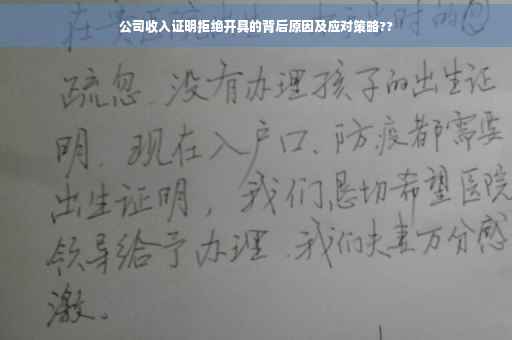 公司收入证明拒绝开具的背后原因及应对策略??
疏忽.没有办理孩子的出生证
明.现在入户口、防疫都需要
出生证明，我们恳切希望医院
领导给予办理.我们夫妻万分感
激。